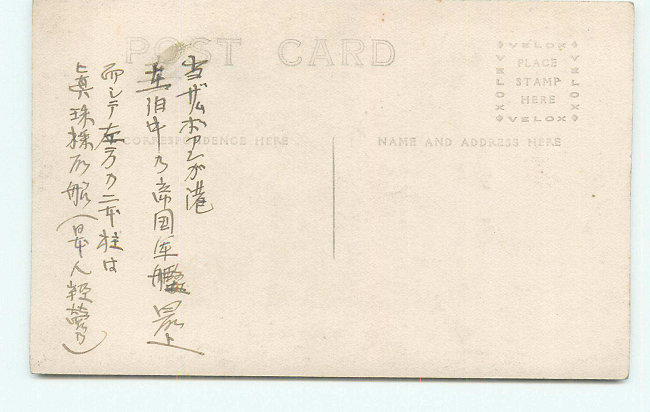 POST CARD
VELOX
VELOX
PLACE
STAMP
HERE
VELOX
VELOX
CORRESPONDENCE HERE
NAME AND ADDRESS HERE
当ザムボアンガ港
在泊中乃帝国軍艦 最上
而シテ左方乃二本柱は
眞珠採取船(日本人経営乃)